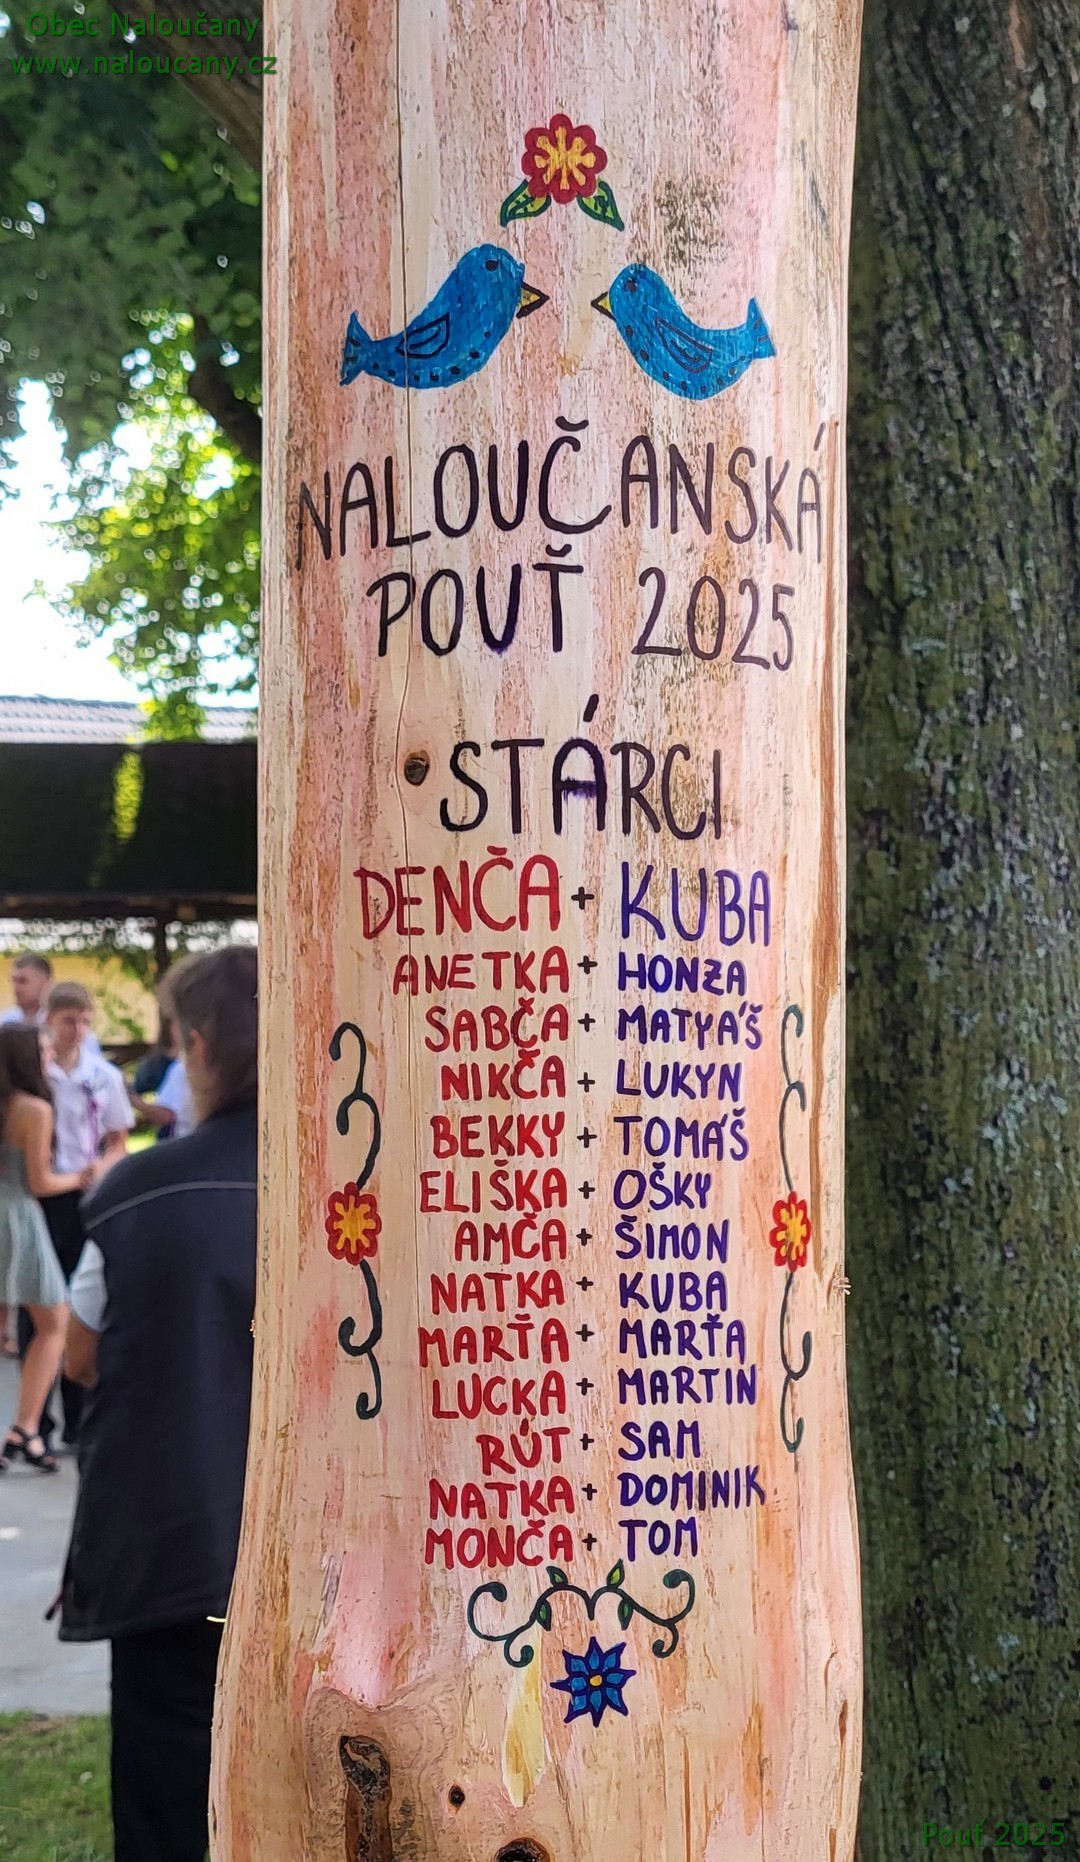 Obec Naloučany
www.naloucany.cz
NALOUČANSKÁ
POUŤ 2025
STÁRCI
DENČA + KUBA
ANETKA + HONZA
SABČA + MATYÁŠ
NIKČA + LUKYN
BEKKY + TOMÁŠ
ELIŠKA + OŠKY
AMČA + ŠIMON
NATKA + KUBA
MARŤA + MARŤA
LUCKA + MARTIN
RÚT + SAM
NATKA + DOMINIK
MONČA + TOM
Pouť 2025